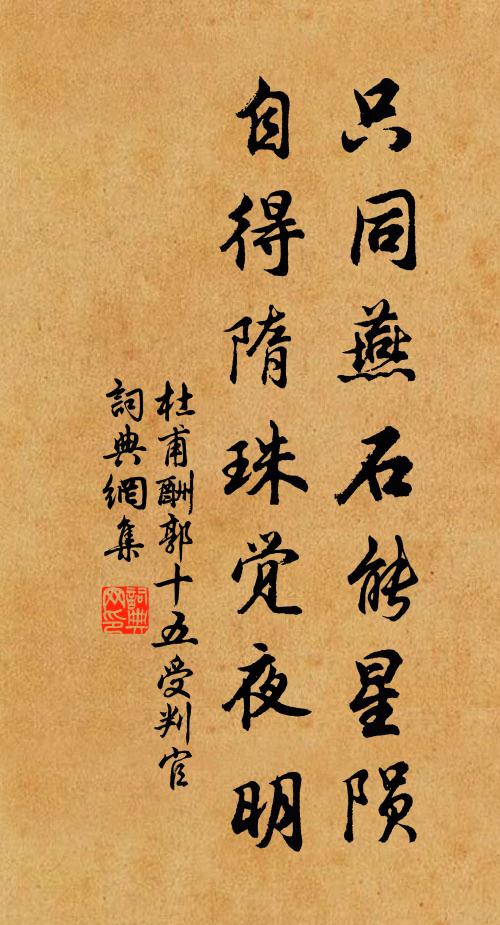 只同燕石能星陨
自得隋珠觉夜明
杜甫酬郭十五受判官
詞典網集
詞典网印